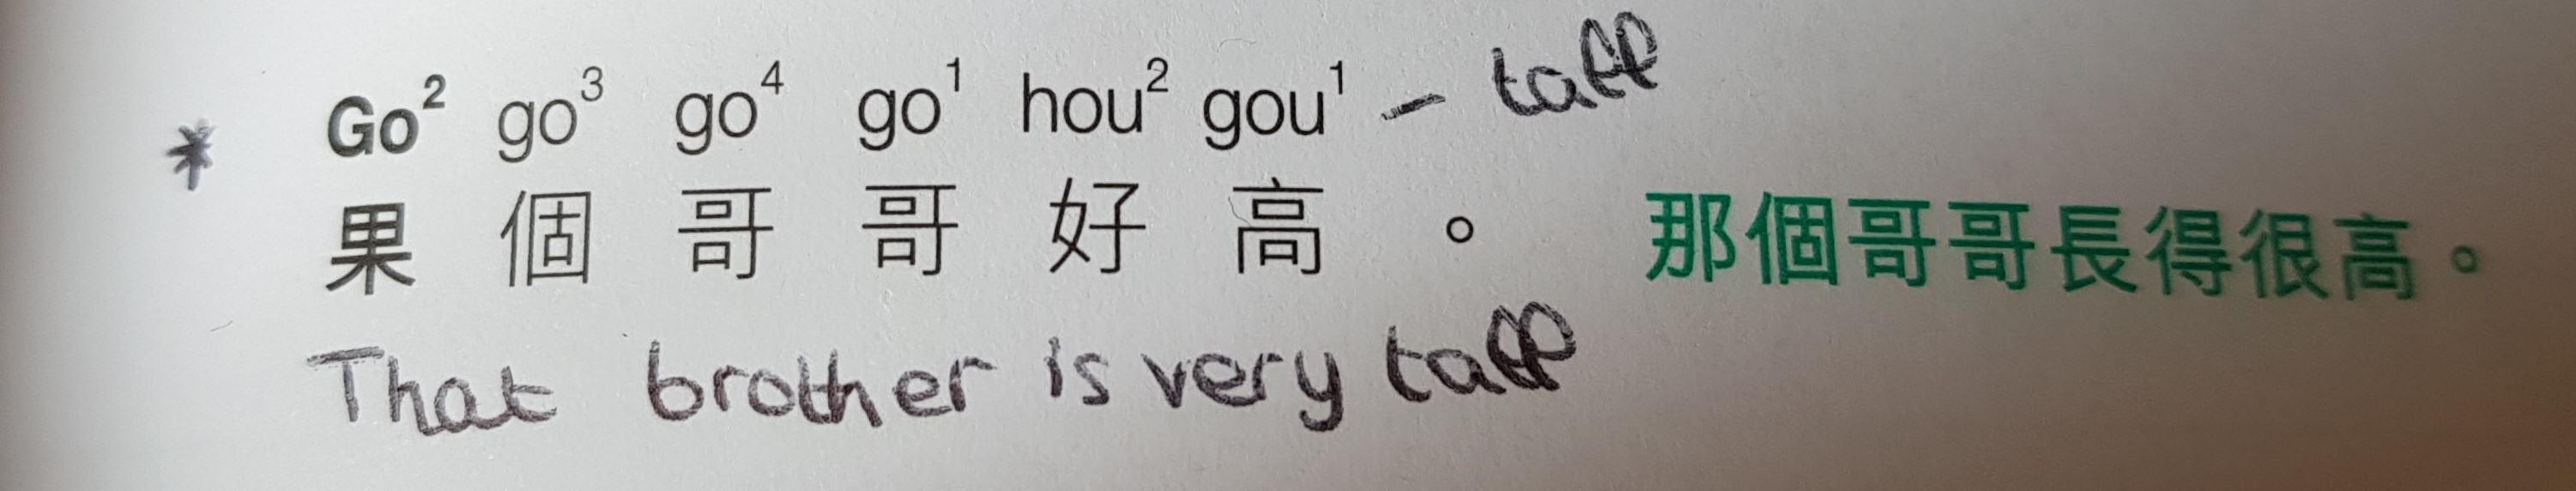 * Go² go³ go⁴ go¹ hou² gou¹ – tall
果 個 哥 哥 好 高 。 那個哥哥長得很高。
That brother is very tall